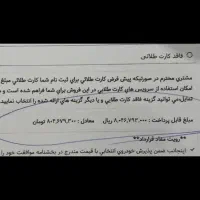 فاقد کارت طلائی
مشتری محترم در صورتیکه پیش فرض کارت طلائی برای ثبت نام شما کارت طلائی مبلغ
امکان استفاده از سرویس های کارت طلایی در این فروش برای شما فراهم شده است و
تمایل می توانید گزینه فاقد کارت طلایی و یا دیگر گزینه های ارائه شده را انتخاب نمایید
مبلغ قابل پرداخت : ۸,۰۴۶,۷۹۳,۰۰۰ ریال معادل : ۸۰۴,۶۷۹,۳۰۰ تومان
**رویت مفاد قرارداد**
اینجانب ضمن پذیرش خودروی انتخابی با قیمت مندرج در بخشنامه موافقت خود را